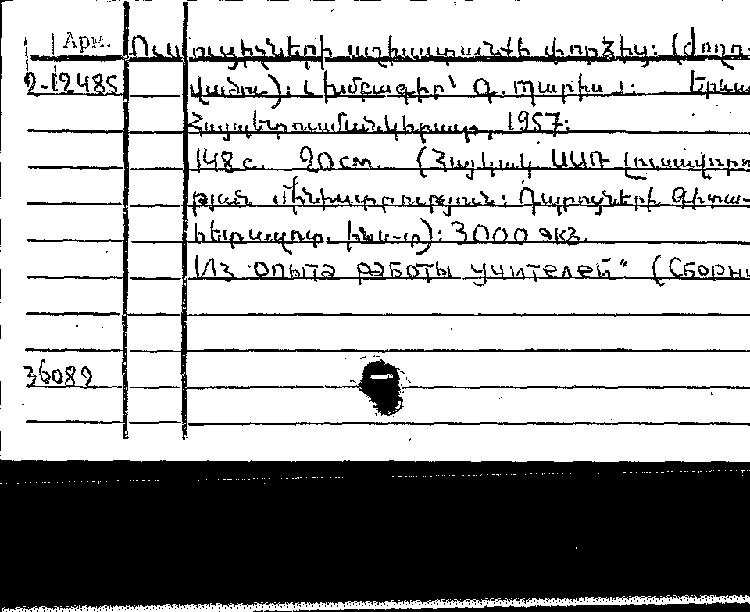 Арм.
Ուսուցիչների աշխատանքի փորձից: (Ժողո-
2-12485
վածու): Խմբագիր՝ Գ. Երևա
Հայպետուսմանկհրատ, 1957:
148 с. 20 см. (Հայկակ ՍՍՌ լուսավորու
թյան մինիստրություն: Դպրոցների Գիտա-
հետազոտ. ինս-տ): 3000 экз.
Из опыта работы учителей" (Сборни
36089